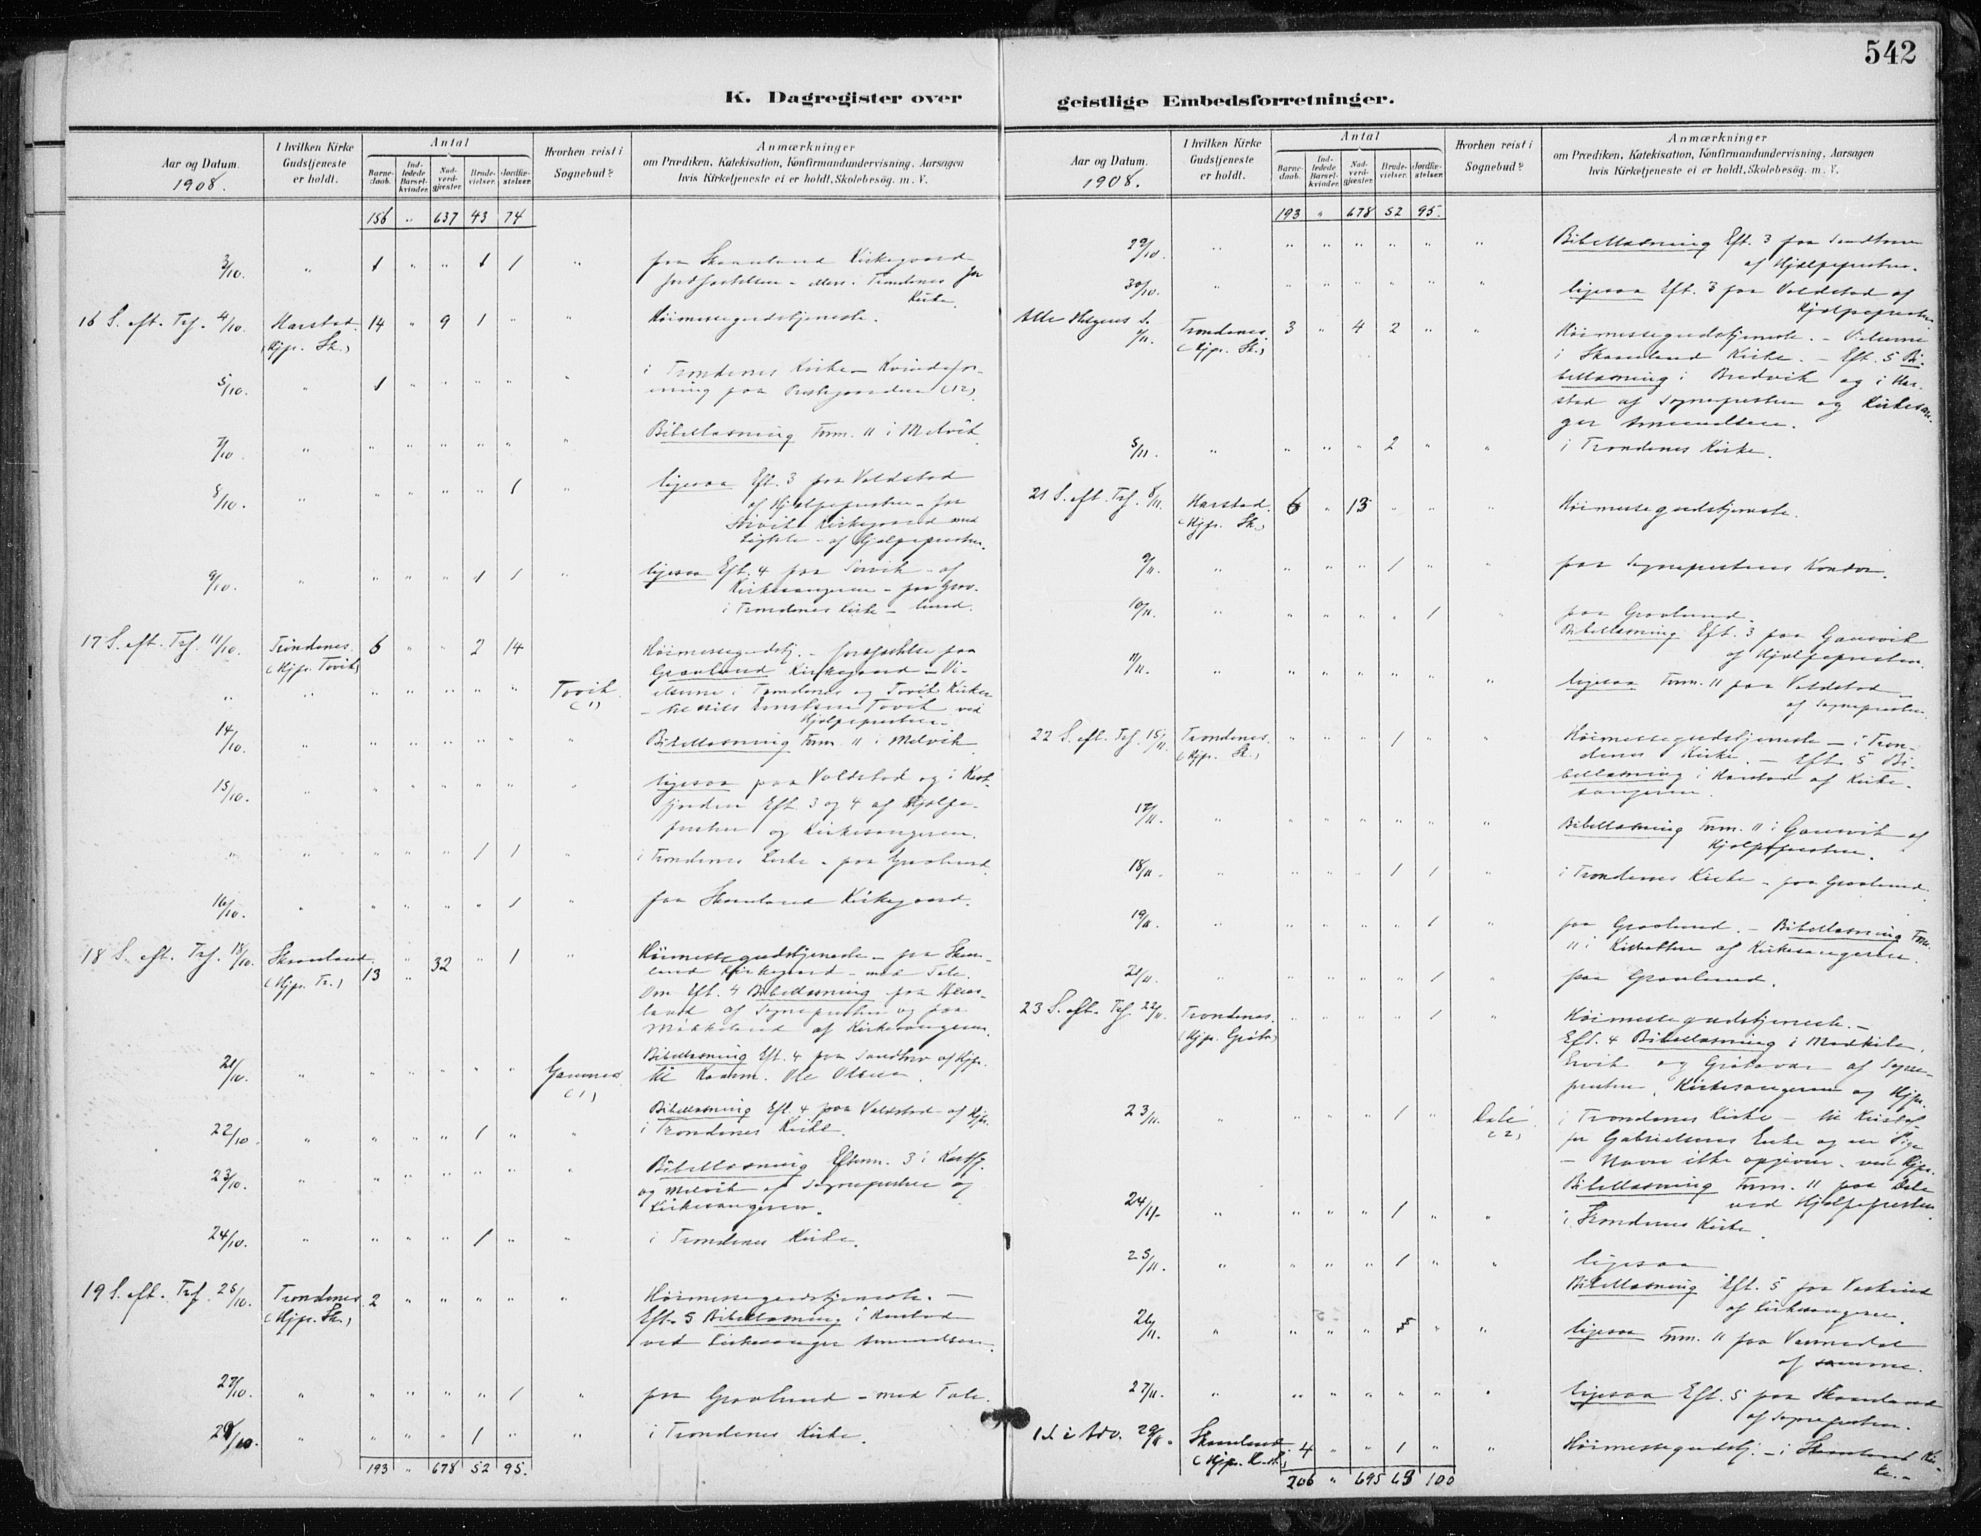 542
K. Dagregister over geistlige Embedsforretninger.
Aar og Datum. 1908. I hvilken Kirke Gudstjeneste er holdt. Antal Barnedaab. Indledede Barselkvinder. Nadverdgjester. Brudevielser. Jordfæstelser. Hvorhen reist i Sognebud? Anmærkninger om Prædiken, Katekisation, Konfirmandundervisning, Aarsagen hvis Kirketjeneste ei er holdt, Skolebesøg. m. V.
156 " 637 43 74
3/10. " 1 " " 1 1 " paa Skaanland Kirkegaard
Kirke.
16 S. eft. Tref. 4/10. Harstad. 14 " 9 1 " " Høimessegudstjeneste.
(Hjpr. Sk.)
5/10. " 1 " " " " " i Trondenes Kirke – Kvindefor-
ening paa Prestegaarden (12)
7/10 " " " " " " " Bibellæsning Form. 11 i Melvik.
8/10. " " " " " 1 " ligesaa Eft. 3 paa Voldstad
af Hjælpepresten – paa
Kirkegaard med
Ligtale – af Hjælpepresten.
9/10. " " " " 1 1 " ligesaa Eft. 4 paa Sørvik – af
Kirkesangeren – paa Grav-
i Trondenes Kirke – lund.
17 S. eft. Tref. 11/10. Trondenes. 6 " " 2 14 Høimessegudstj. – Jordfæstelse paa
(Hjpr. Tovik) Gravlund Kirkegaard – Vi-
" " " " " " " Tovik. (1) elserne i Trondenes og Tovik Kirker
– til Nils Tovik ved
Hjælpepresten –
14/10. " " " " " " " Bibellæsning Form. 11 i Melvik.
15/10. " " " " " " " ligesaa paa Voldstad og i Kast-
fjorden Eft. 3 og 4 af Hjælpe-
presten og Kirkesangeren.
" " " " " 1 1 " i Trondenes Kirke – paa Gravlund.
16/10. " " " " " 1 " paa Skaanland Kirkegaard.
18 S. eft. Tref. 18/10. Skaanland. 13 " 32 " 1 " Høimessegudstjeneste – paa Skaan-
(Hjpr. Tr.) land Kirkegaard – med Tale.
Om Eft. 4 Bibellæsning paa
af Sognepresten og paa
af Kirkesangeren.
21/10. " " " " " " Gausnes (1) Bibellæsning Eft. 4 paa Sandtorv af Hjpr.
til Ole Olsen.
22/10. " " " " 1 " " Bibellæsning Eft. 4 paa Voldstad af Hjpr.
i Trondenes Kirke.
23/10. " " " " " " " Bibellæsning Efterm. 3 i Kastfj.
og Melvik af Sognepresten og
Kirkesangeren.
24/10. " " " " 1 " " i Trondenes Kirke.
19 S. eft. Tref. 25/10. Trondenes. 2 " " " " " Høimessegudstjeneste. –
(Hjpr. Sk.) Eft. 5 Bibellæsning i Harstad
ved Kirkesanger Amundsen.
27/10. " " " " " 1 " paa Gravlund – med Tale.
28/10. " " " " 1 " " i Trondenes Kirke.
193 " 678 52 95.
Aar og Datum. 1908. I hvilken Kirke Gudstjeneste er holdt. Antal Barnedaab. Indledede Barselkvinder. Nadverdgjester. Brudevielser. Jordfæstelser. Hvorhen reist i Sognebud? Anmærkninger om Prædiken, Katekisation, Konfirmandundervisning, Aarsagen hvis Kirketjeneste ei er holdt, Skolebesøg. m. V.
193 " 678 52 95.
29/10. " " " " " " " Bibellæsning Eft. 3 paa Sandtorv
af Hjælpepresten.
30/10. " " " " " " " ligesaa Eft. 3 paa Voldstad af
Hjælpepresten.
Alle Helgens S. 1/11. Trondenes 3 " 4 2 " " Høimessegudstjeneste. – Vielserne
(Hjpr. Sk.) i Skaanland Kirke. – Eft. 5 Bi-
bellæsning i Bredvik og i Har-
stad af Sognepresten og Kirkesan-
ger Amundsen.
5/11. " " " " 2 " " i Trondenes Kirke.
21 S. eft. Tref. 8/11. Harstad. 6 " 13 " " " Høimessegudstjeneste.
(Hjpr. Sk.)
9/11. " " " " 1 " " paa Sogneprestens Kontor.
10/11. " " " " " 1 " paa Gravlund.
Bibellæsning Eft. 3 paa Gausvik
af Hjælpepresten.
11/11. " " " " " " " ligesaa Form. 11 paa Voldstad –
af Sognepresten.
22 S. eft. Tref. 15/11. Trondenes. " " " 1 " " Høimessegudstjeneste – i Tron-
(Hjpr. Sk.) denes Kirke. – Eft. 5 Bi-
bellæsning i Harstad af Kirke-
sangeren.
17/11. " " " " " " " Bibellæsning Form. 11 i Gausvik af
Hjælpepresten.
18/11. " " " " 1 1 " i Trondenes Kirke – paa Gravlund.
19/11. " " " " " 1 " paa Gravlund. – Bibellæsning Form.
11 i af Kirkesangeren.
21/11. " " " " " 1 " paa Gravlund.
23 S. eft. Tref. 22/11. Trondenes. " " " " 1 " Høimessegudstjeneste. –
(Hjpr. Grøtv.) Eft. 4 Bibellæsning i
Ervik og Grøtavær af Sogne-
presten, Kirkesangeren og Hjpr.
23/11. " " " " 1 " Dale (2) i Trondenes Kirke – til
Gabrielsens Enke og en Pige
– Navn ikke opgiven – ved Hjpr.
24/11. " " " " 1 " " Bibellæsning Form. 11 paa Dale
ved Hjælpepresten.
i Trondenes Kirke.
25/11. " " " " 1 " " ligesaa
Bibellæsning Eft. 5 paa
af Kirkesangeren.
26/11. " " " " " " ligesaa Form. 11 paa
af samme.
27/11. " " " " " " " ligesaa Eft. 5 paa Skaanland
af Sognepresten.
1 S. i Adv. 29/11. Skaanland 4 " " 1 " " Høimessegudstj. – i Skaanland Kir-
ke. –
206 " 695 63 100